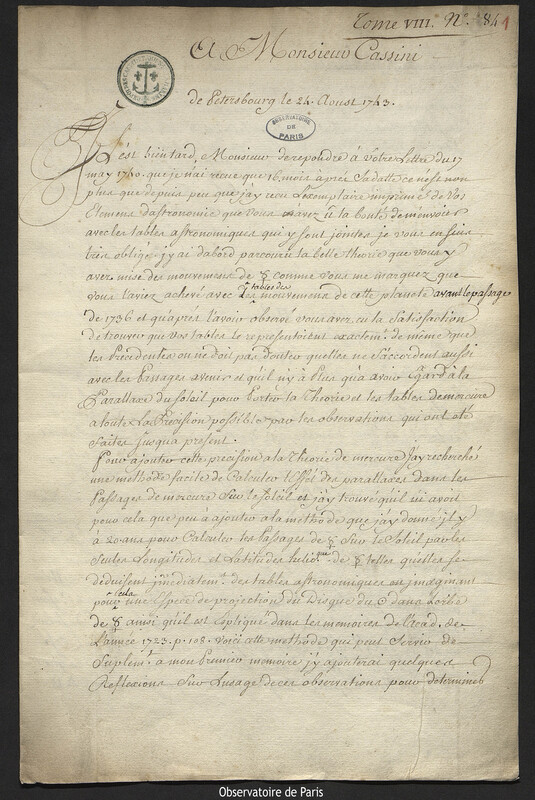 Tome VIII. N.º 84 1
A Monsieur Cassini
de Petersbourg le 24. Aoust 1743.
OBSERVATOIRE DE PARIS
Il est bien tard, Monsieur de repondre à votre Lettre du 17
may 1740. que je n'ai reçue que 16. mois après sa datte ce n'est non
plus que depuis peu que j'ay reçu l'exemplaire imprimé de vos
Elemens d'astronomie que vous avez û la bonté de m'envoier
avec les tables astronomiques qui y sont jointes je vous en suis
très obligé j'y ai d'abord parcouru la belle theorie que vous y
avez mise des mouvemens de ☿ comme vous me marquez que
vous l'aviez achevé avec les tables des mouvemens de cette planete avant le passage
de 1736 et qu'après l'avoir observé vous avez eu la satisfaction
de trouver que vos tables le representoient exactemt. de même que
les précédentes on ne doit pas douter qu'elles ne s'accordent aussi
avec les passages avenir et qu'il n'y a plus qu'a avoir égard à la
Parallaxe du Soleil pour porter la Theorie et les tables de mercure
a toute la Précision possible par les observations qui ont eté
faites jusqu'a present.
Pour ajouter cette precision a la Theorie de mercure j'ay recherché
une methode facile de Calculer l'Effet des parallaxes dans les
Passages de mercure sur le soleil et j'ay trouvé qu'il n'i avoit
pour cela que peu à ajouter a la methode que j'ay donné il y
à 20 ans pour Calculer les Passages de ☿ sur le Soleil par les
seules Longitudes et Latitudes helioques. de ☿ telles qu'elles se
deduisent imédiatemt. des tables astronomiques en imaginant
pour cela une Espece de projection du Disque du ☉ dans l'orbe
de ☿ ainsi qu'il est expliqué dans les memoires de l'acad. de
L'année 1723. p. 108. voici cette methode qui peut servir de
Suplemt. a mon premier memoire j'y ajouterai quelques
Reflexions sur l'usage de ces observations pour determiner
Observatoire de Paris